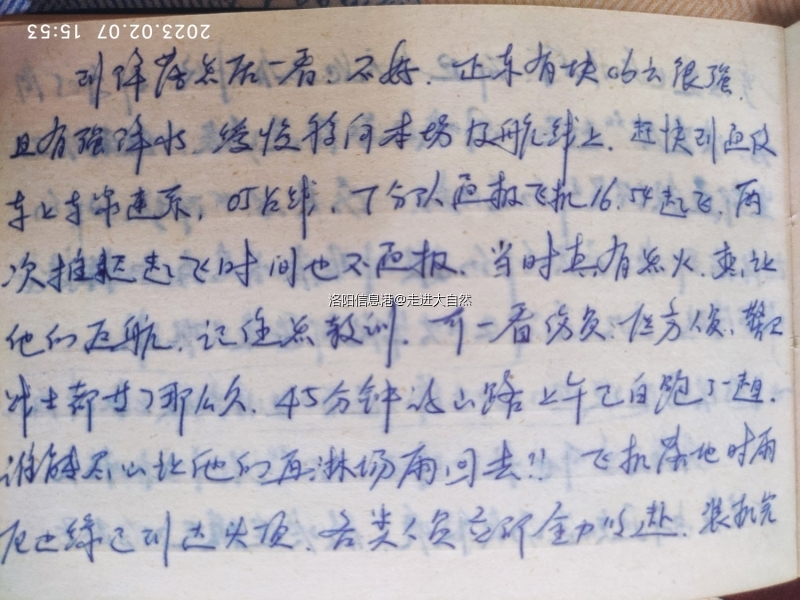 2023.02.07 15:53
到降落点后一看,不好,正东有块Cb云很强,
且有强降水,缓慢移向本场及航线上,赶快到通仪
车上去常连系,05占线,丁分队通报飞机16.54起飞,两
次推迟起飞时间也不通报,当时真有点火,真让
他们返航,记住点教训,可一看伤员,医方人员,警卫
战士都等了那么久,45分钟的山路上午已白跑了一趟,
谁能忍心让他们再淋场雨回去!!飞机落地时雨
区边缘已到达头顶,各类人员立即全力以赴,装机完
洛阳信息港@走进大自然